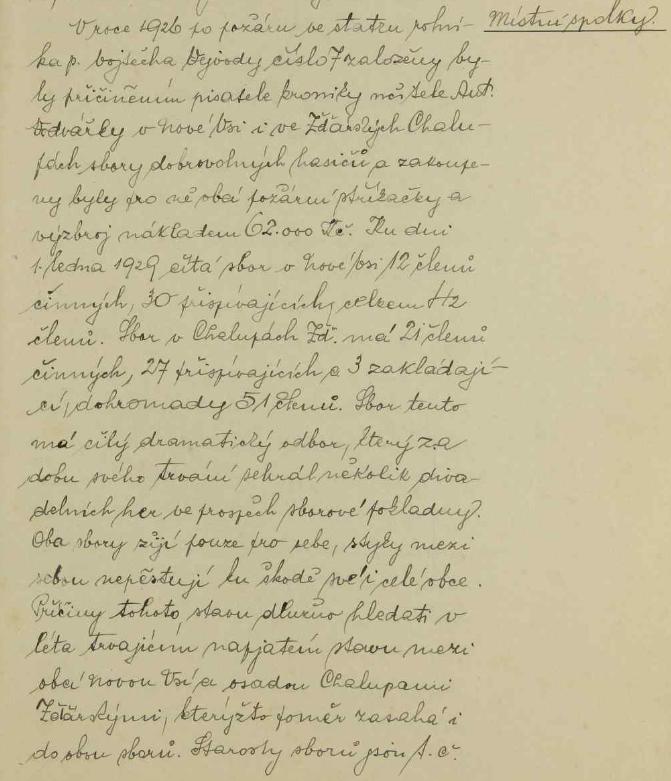 V roce 1926 po požáru ve statku rolní-
Místní spolky.
ka p. Vojtěcha Vejvody číslo 7 založeny by-
ly přičiněním pisatele kroniky učitele Ant.
Dvářky v Nové Vsi i ve Žďárských Chalu-
pách sbory dobrovolných hasičů a zakoupe-
ny byly pro ně obcí požární stříkačky a
výzbroj nákladem 62.000 Kč. Ku dni
1. ledna 1929 čítá sbor v Nové Vsi 12 členů
činných, 30 přispívajících, celkem 42
členů. Sbor v Chalupách Žď. má 21 členů
činných, 27 přispívajících a 3 zakládají-
cí, dohromady 51 členů. Sbor tento
má čilý dramatický odbor, který za
dobu svého trvání sehrál několik diva-
delních her ve prospěch sborové pokladny.
Oba sbory žijí pouze pro sebe, styky mezi
sebou nepěstují ku škodě své i celé obce.
Příčiny tohoto stavu dlužno hledati v
léta trvajícím napjatém stavu mezi
obcí Novou Vsí a osadou Chalupami
Žďárskými, kterýžto poměr zasahá i
do obou sborů. Starosty sborů jsou t. č.